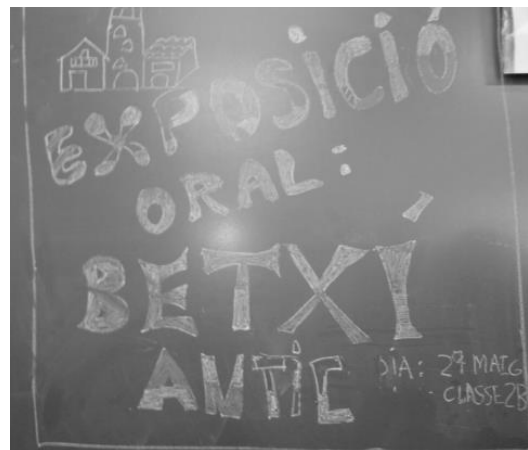 EXPOSICIÓ
ORAL:
BETXÍ
ANTIC
DIA: 27 MAIG
CLASSE2B